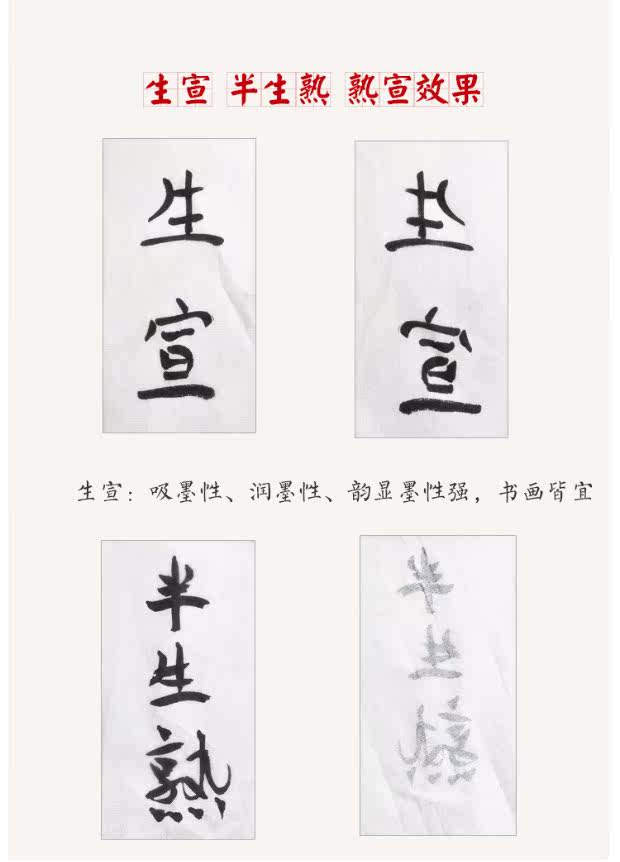 生宣 半生熟 熟宣效果
生
宣
生
宣
生宣：吸墨性、润墨性、韵显墨性强，书画皆宜
半
生
熟
半
生
熟